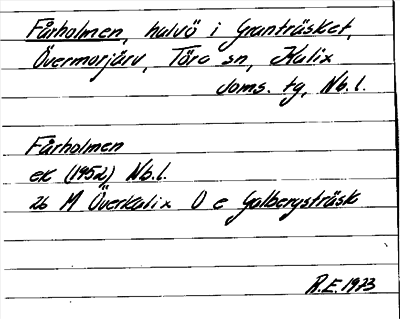 Fårholmen, halvö i Granträsket,
Övermorjärv, Töre sn, Kalix
doms. tg, Nb.l.
Fårholmen
ek (1952) Nb.l.
26 M Överkalix O e Galbergsträsk
R.E. 1973